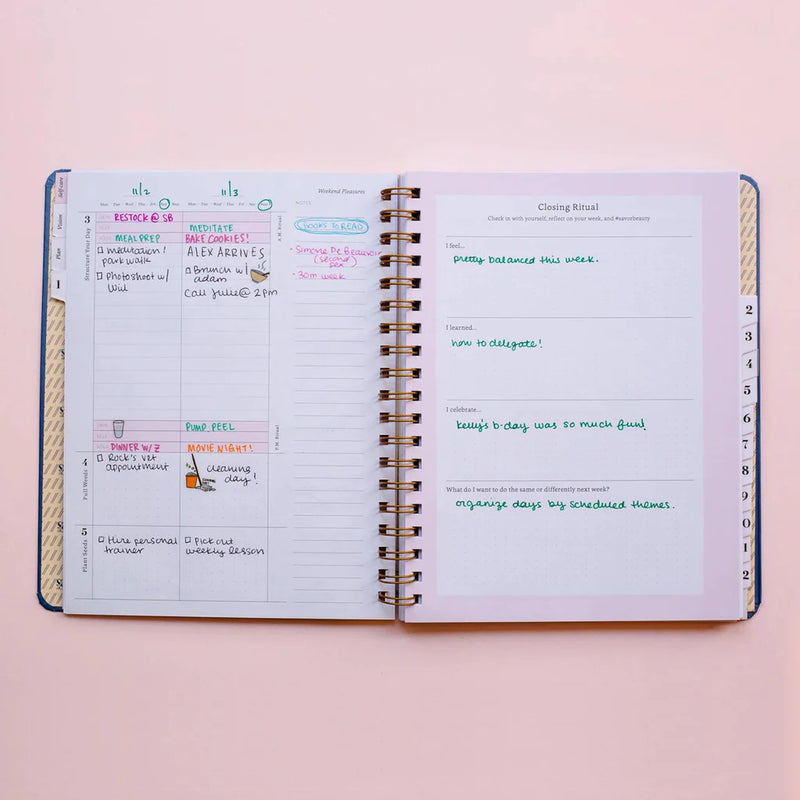 Self-care
Vision
Plan
1
11/2
11/3
Mon Tue Wed Thu Fri Sat Sun
Mon Tue Wed Thu Fri Sat Sun
Weekend Pleasures
3
Structure Your Day
A.M. Ritual
RESTOCK @ SB
MEDITATE
MEAL PREP
BAKE COOKIES!
meditation/
park walk
Photoshoot w/
Will
ALEX ARRIVES
Brunch w/
adam
Call Julie @ 2pm
NOTES
BOOKS TO READ
• Simone De Beauvoir
(second
sex)
• 30m week
P.M. Ritual
PUMP PEEL
DINNER W/ Z
MOVIE NIGHT!
4
Pull Weeds
Rock's vet
appointment
cleaning
day!
5
Plant Seeds
Hire personal
trainer
Pick out
weekly lesson
Closing Ritual
Check in with yourself, reflect on your week, and #savorbeauty
I feel...
pretty balanced this week.
I learned...
how to delegate!
I celebrate...
Kelly's b-day was so much fun!
What do I want to do the same or differently next week?
organize days by scheduled themes.
2
3
4
5
6
7
8
9
0
1
2